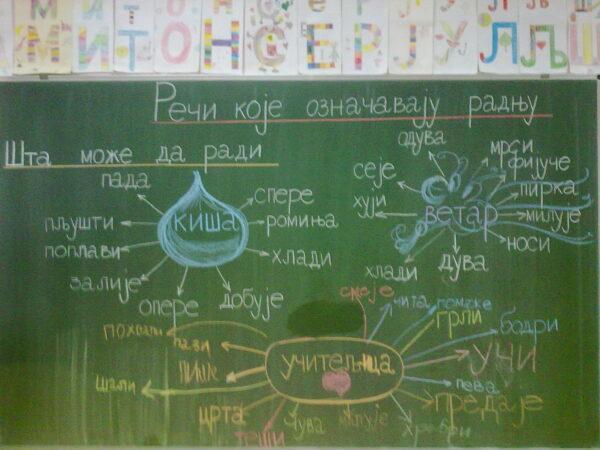 М И Т О Н С Б Р Ј У Л Љ Ш
Речи које означавају радњу
Шта може да ради
пада
пљушти
поплави
залије
опере
добује
хлади
ромиња
спере
киша
одува
сеје
хуји
хлади
дува
носи
милује
пирка
фијуче
мрси
ветар
учитељица
смеје
чита
помаже
грли
бодри
учи
пева
предаје
храбри
милује
чува
теши
црта
шали
пише
пази
похвали